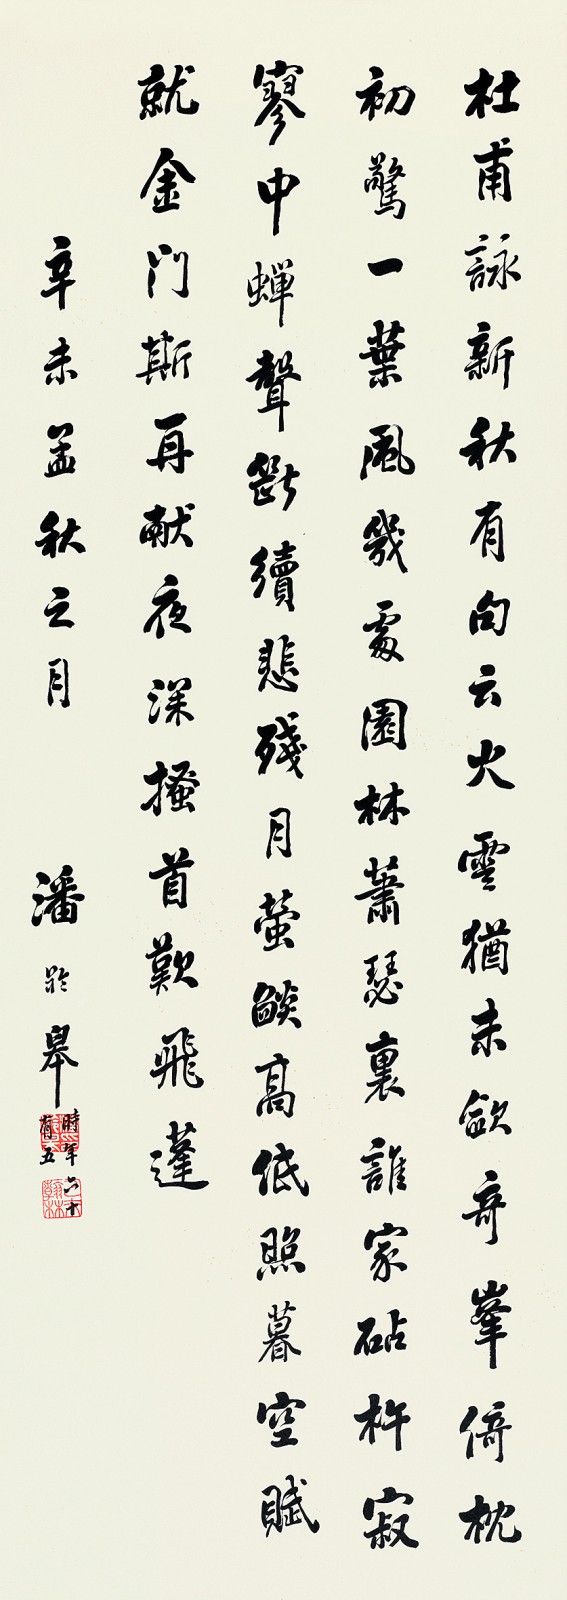 杜甫詠新秋有句云火雲猶未斂奇峯倚枕
初驚一葉風幾處園林蕭瑟裏誰家砧杵寂
寥中蟬聲斷續悲殘月螢燄高低照暮空賦
就金門斯再献夜深搔首歎飛蓬
辛未孟秋之月
潘齡皋
時年六十
有五